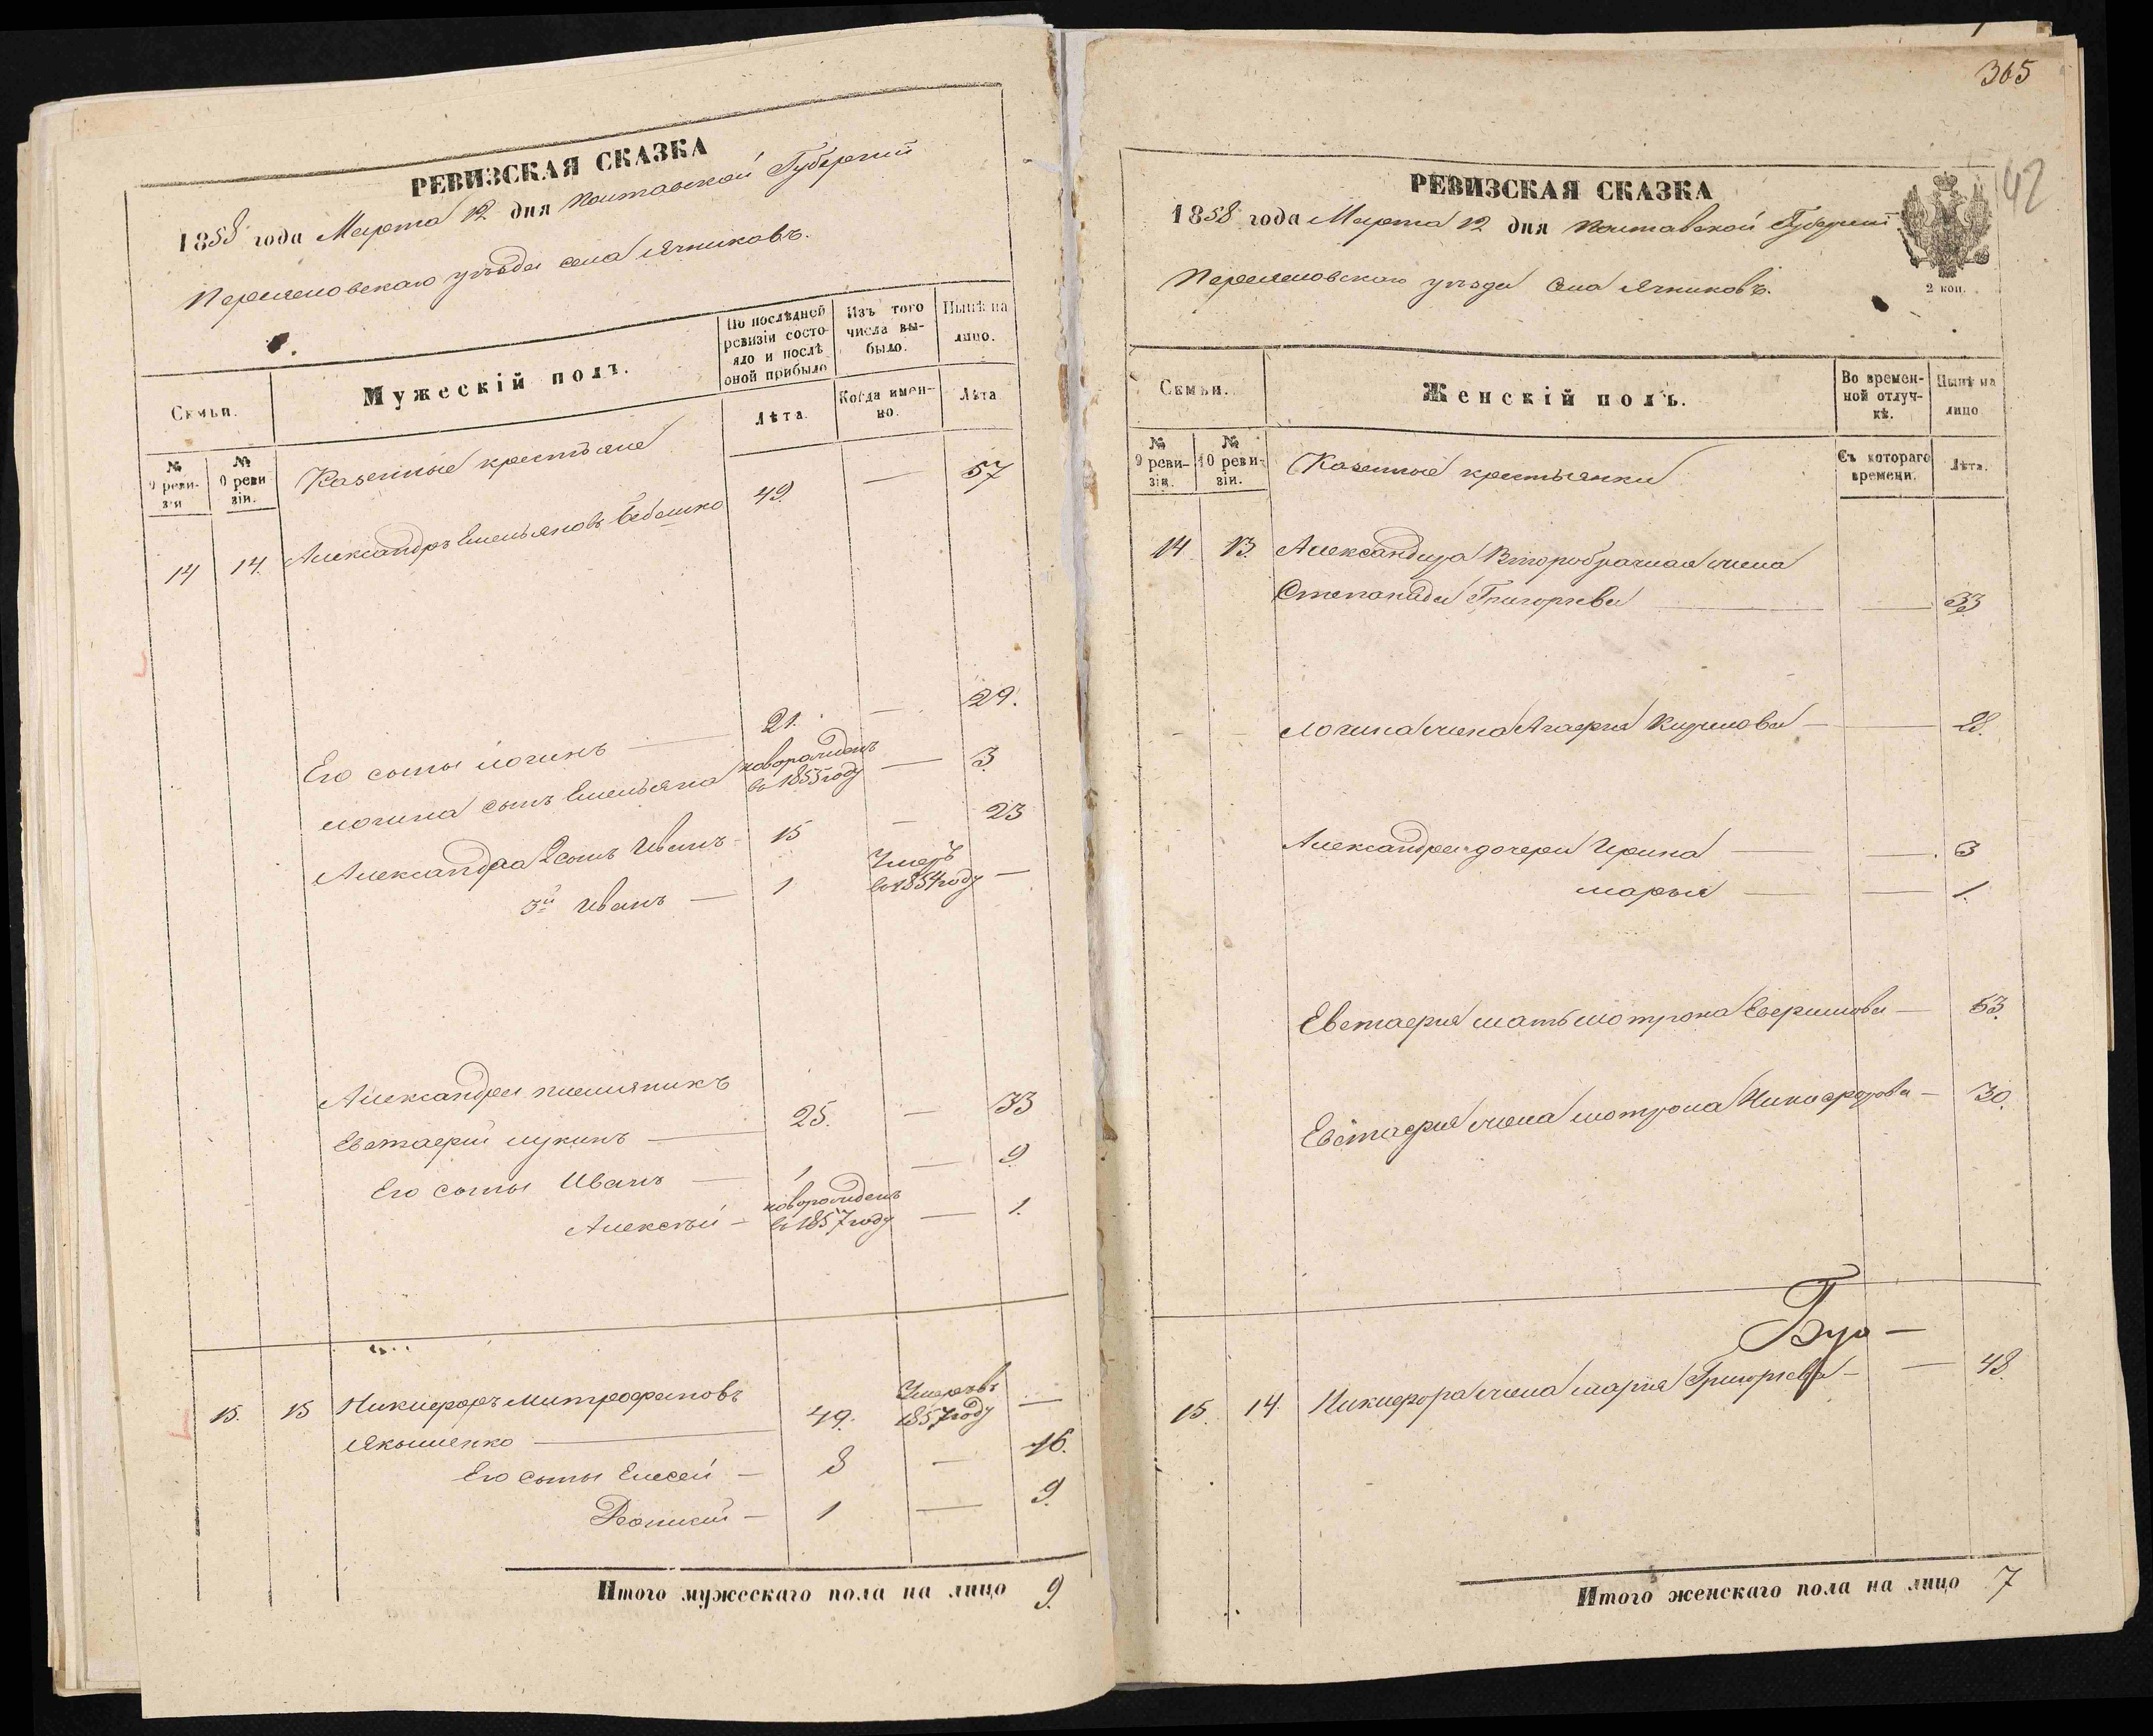 РЕВИЗСКАЯ СКАЗКА
1858 года Марта 12 дня Полтавской Губернии
Переяславскаго уѣзда села Ячниковъ.
Семьи.
Мужескій полъ.
По послѣдней ревизіи состояло и послѣ оной прибыло
Изъ того числа выбыло.
Нынѣ на лицо.
№ 9 ревизіи
№ 10 ревизіи.
Лѣта.
Когда именно.
Лѣта
Казенные крестьяне
14 14. Александръ Емельяновъ 49. — 57
Его сыны Логинъ — 21. — 29.
Логина сынъ Емельянъ новорожденъ въ 1855 году — 3.
Александра 2 сынъ Иванъ 15 — 23
3й Иванъ — 1 Умеръ въ 1854 году —
Александра племяникъ
Евстафій Лукинъ — 25. — 33
Его сыны Иванъ — 1 — 9.
Алексѣй — новорожденъ въ 1857 году — 1.
15. 15 Никифоръ Митрофановъ
Якошенко — 49. Умеръ въ 1857 году —
Его сыны Елисей — 8 — 16.
1 — 9.
Итого мужескаго пола на лицо 9.
365
42
РЕВИЗСКАЯ СКАЗКА
1858 года Марта 12 дня Полтавской Губерніи
Переяславскаго уѣзда села Ячниковъ.
2 коп.
Семьи.
Женскій полъ.
Во временной отлучкѣ.
Нынѣ на лицо
№ 9 ревизіи.
№ 10 ревизіи.
Съ котораго времени.
Лѣта.
Казенные крестьянки
14. 13. Александра Второбрачная жена
Степанида Григорьева — — 33
Логина жена Агафія Кирилова — — 28.
Александра дочери Ирина — — 3
Марья — — 1.
Евстафія мать Мотрона Ефимова — 53.
Евстафія жена Мотрона Никифорова — 30.
15. 14. Никифора жена Марія Григорьева — — 48.
Итого женскаго пола на лицо 7